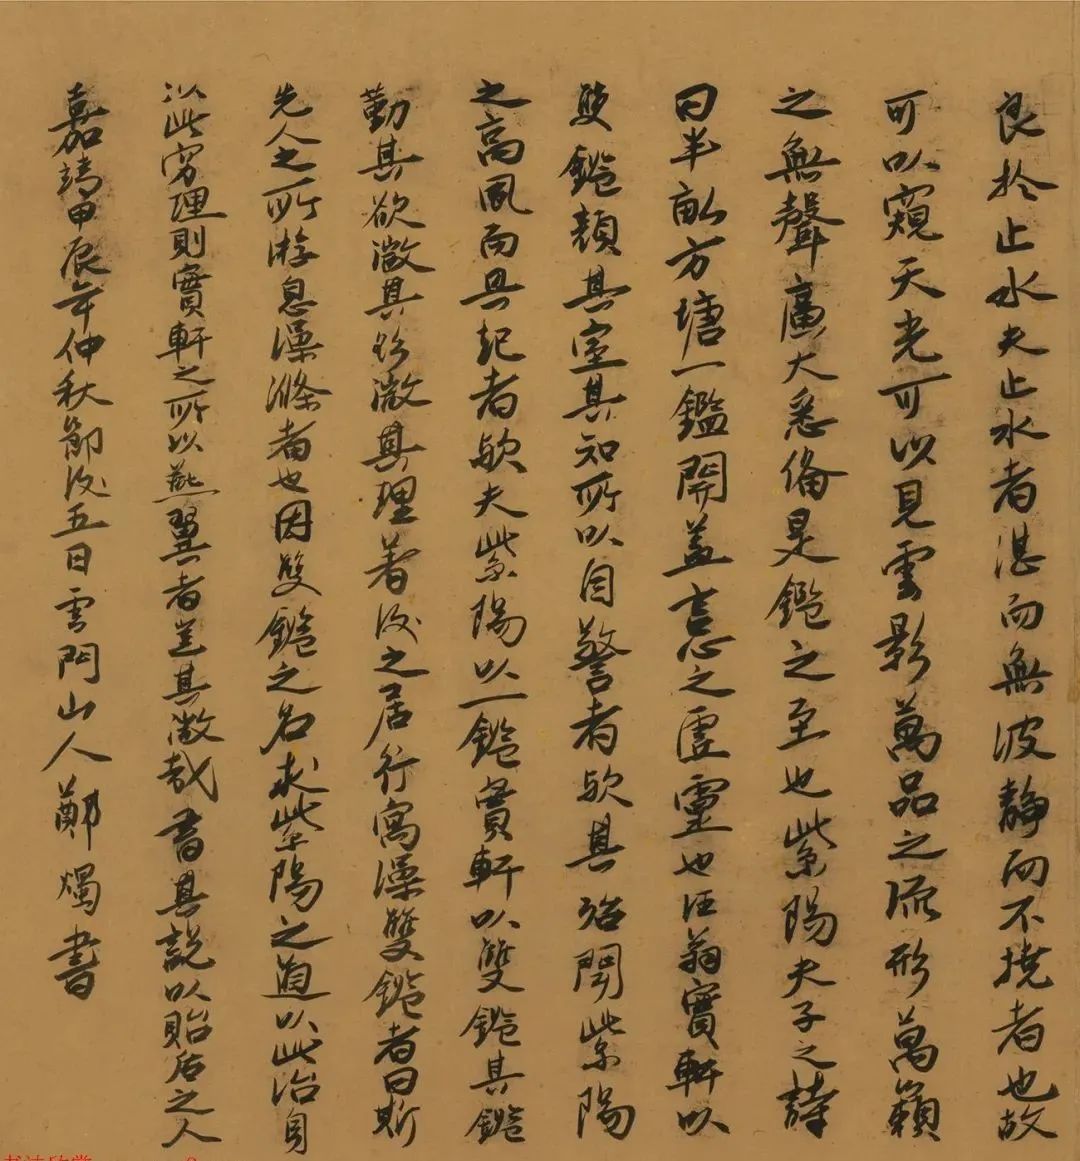 良於止水夫止水者湛而無波靜而不撓者也故
可以窺天光可以見雲影萬品之流形萬籟
之無聲廣大悉備是鑑之至也紫陽夫子之詩
曰半畝方塘一鑑開蓋言心之虛靈也汪翁實軒以
雙鑑顏其室其知所以自警者歟其殆聞紫陽
之高風而興起者歟夫紫陽以一鑑實軒以雙鑑其鑑
勤其欲澂其欲澂其理著後之居行寓澡雙鑑者曰斯
先人之所游息澡滌者也因雙鑑之名求紫陽之道以此治身
以此窮理則實軒之所以燕翼者豈其微哉書其說以貽后之人
嘉靖甲辰年仲秋節後五日雲門山人鄭燭書